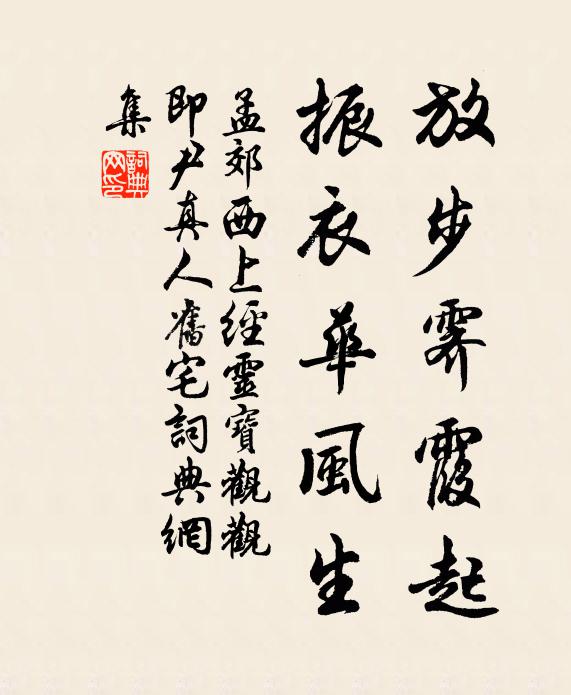 放步霽霞起
振衣華風生
孟郊西上經靈寶觀觀
即尹真人舊宅詞典網
集
詞典網印